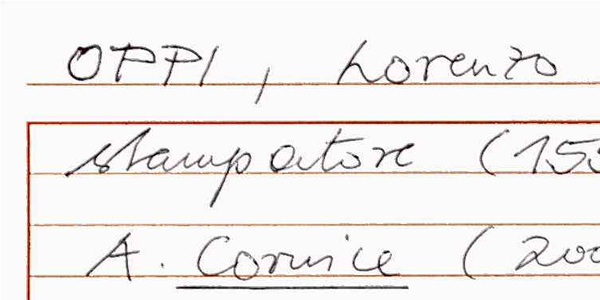 OPPI, Lorenzo
stampatore (155
A. Cornice (200